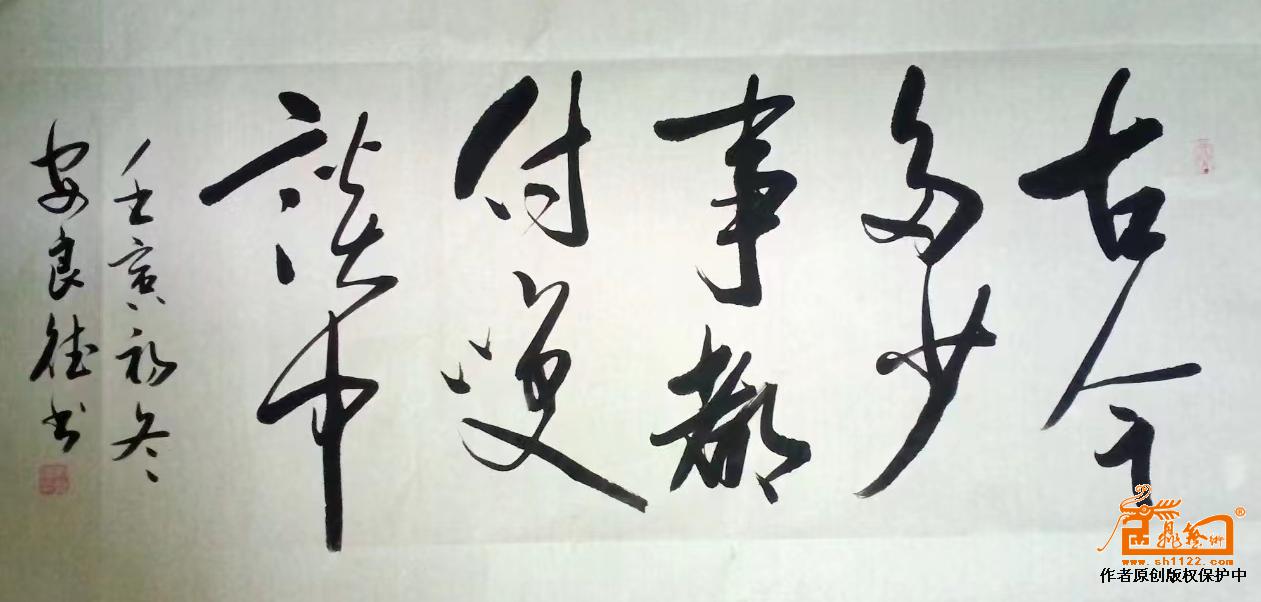 古今
多少
事都
付笑
談中
壬寅初冬
安良德书
®
www.sh1122.com
作者原创版权保护中